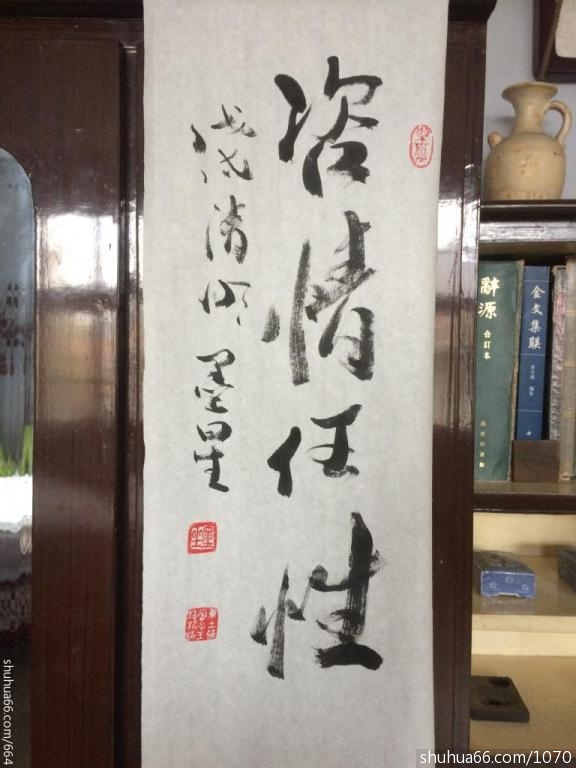 恣情任性
戊戌清明 墨星
辭源
合訂本
商務印書館
金文集联
shuhua66.com/664
shuhua66.com/1070